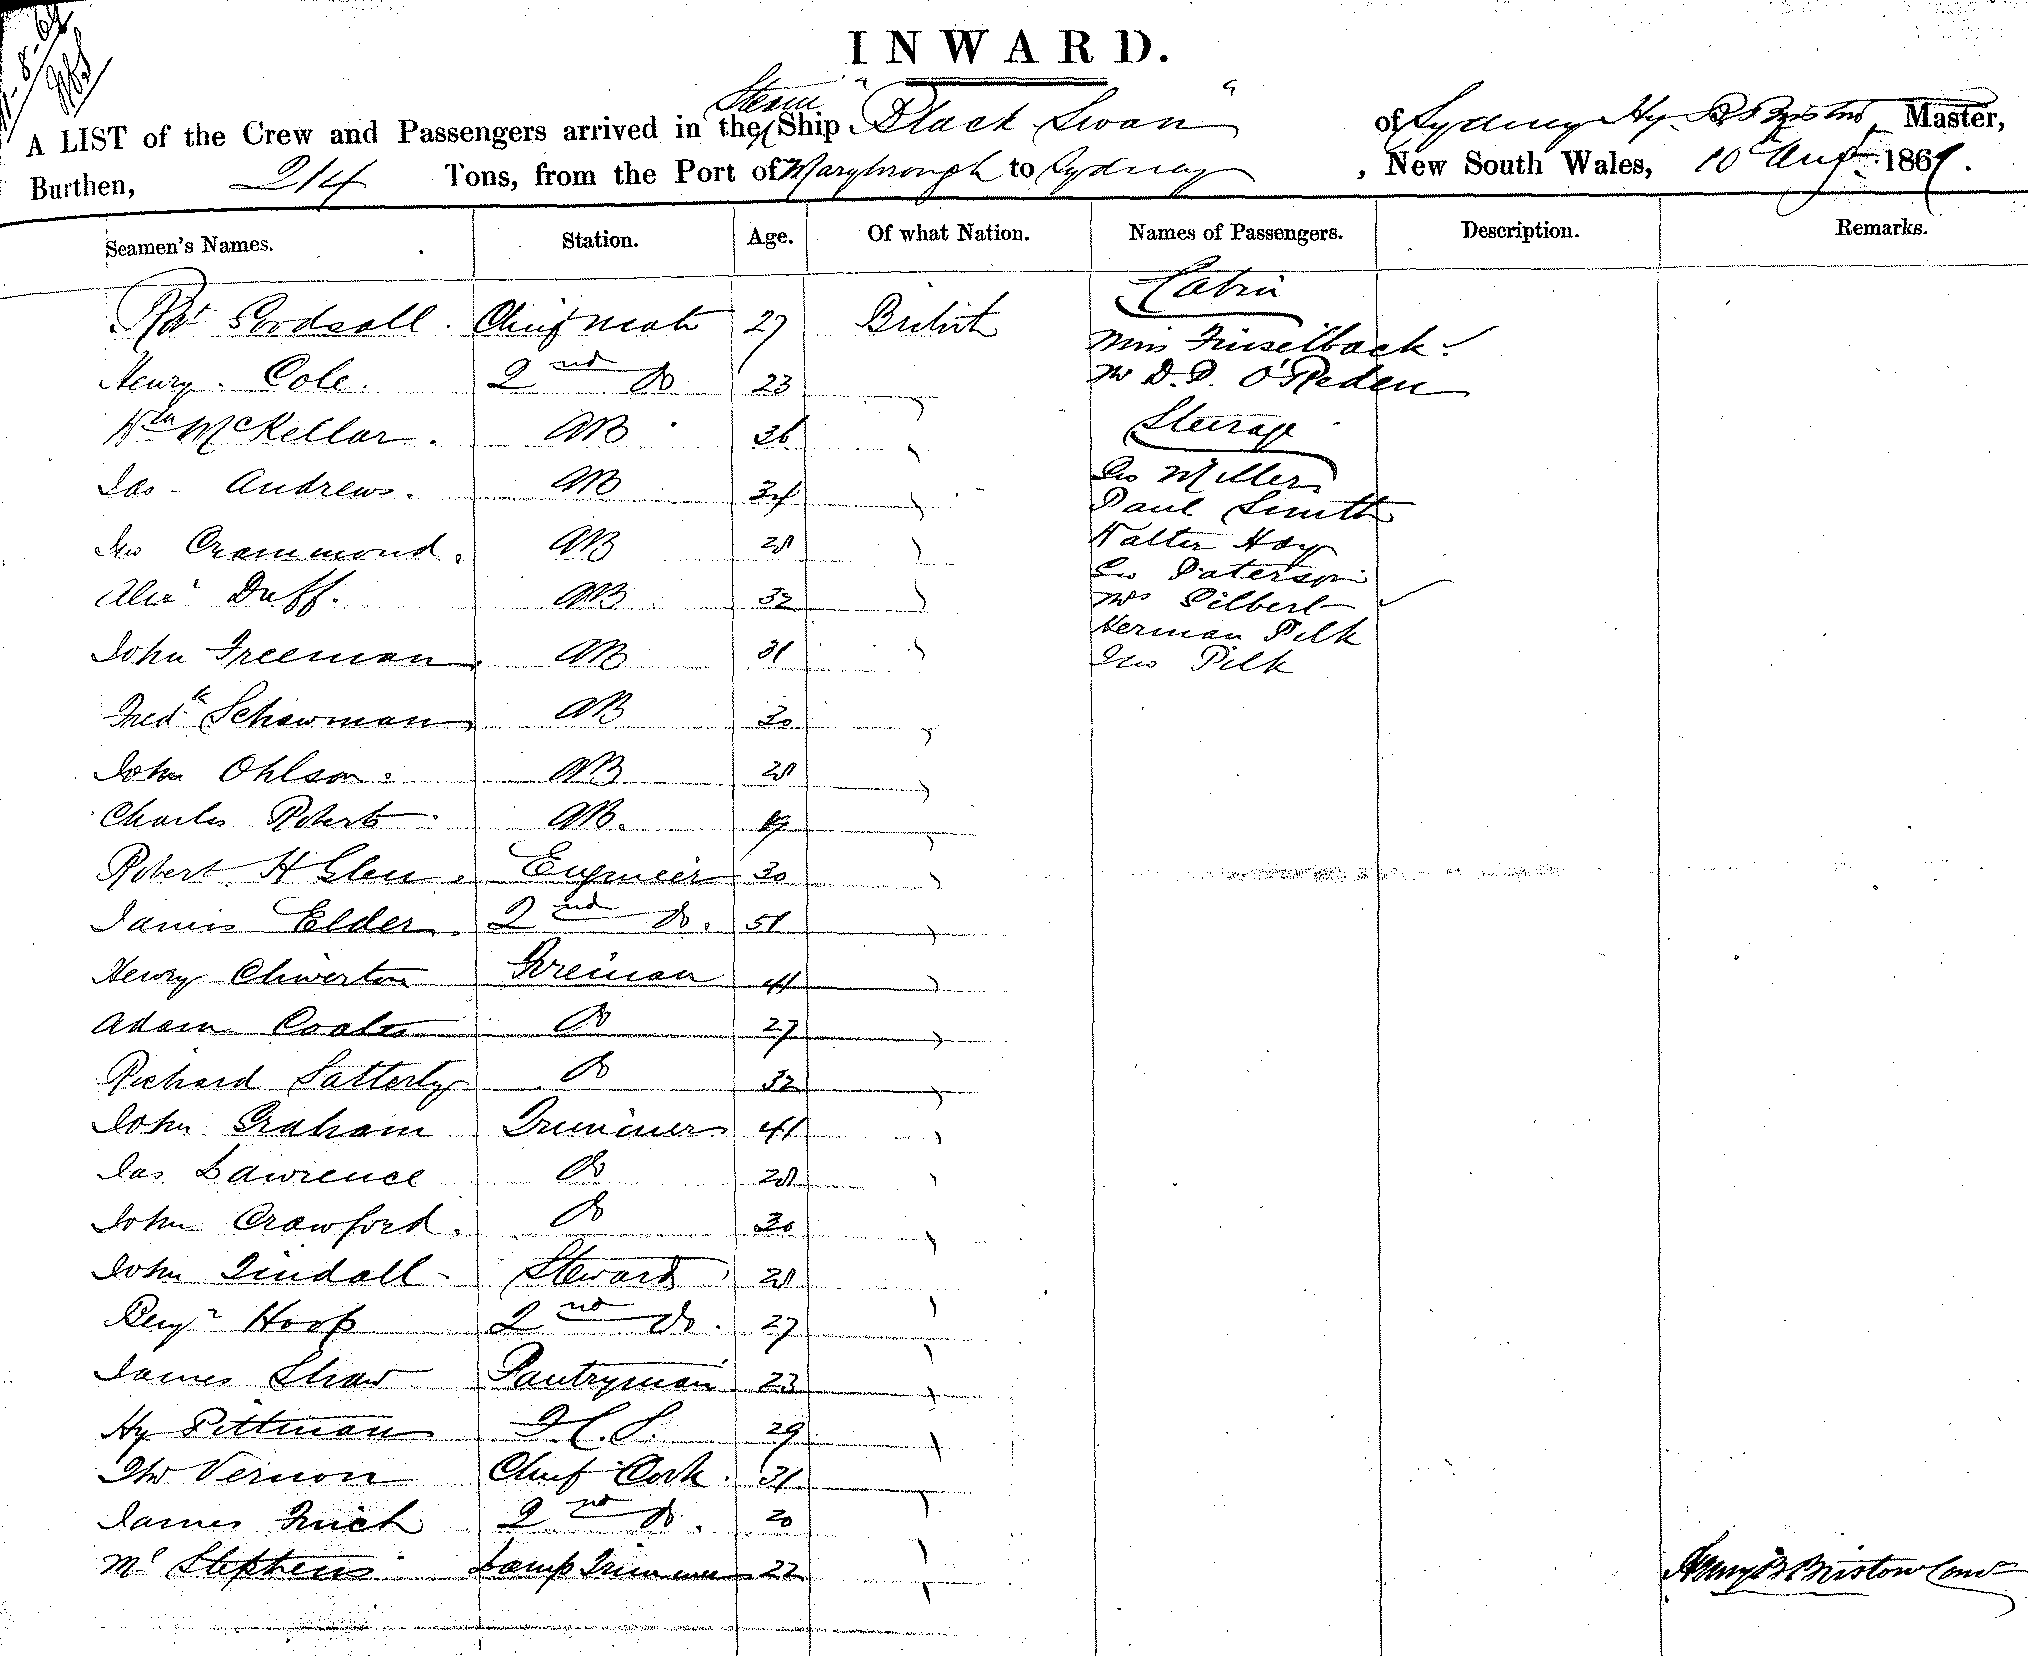 11-8-69
INWARD.
A LIST of the Crew and Passengers arrived in the Steam Ship "Black Swan" of Sydney Hy. B. Bristow, Master,
Burthen, 214 Tons, from the Port of Maryborough to Sydney, New South Wales, 10th Augt. 1869.
Seamen's Names. Station. Age. Of what Nation. Names of Passengers. Description. Remarks.
Cabin
Robt Goodsall. Chief mate 27 British
Miss Finselback.
Henry Cole. 2nd Do 23
Mr D. D. O'Reden
Wm McKellar. AB 36
Steerage
Jas Andrews. AB 34
Geo Miller
Paul Smith
Jno Crammond. AB 28
Walter Hay
Geo Paterson
Alexr Duff. AB 32
Mrs Gilbert
Herman Pilk
John Freeman AB 31
Jno Pilk
Fredk Schowman AB 30
John Ohlson. AB 28
Charles Roberts AB. 19
Robert H Glen. Engineer 30
James Elder. 2nd Do. 51
Henry Chiverton Fireman 44
Adam Coates Do 27
Richard Satterly Do 32
John Graham Trimmer 41
Jas Lawrence Do 28
John Crawford. Do 30
John Tindall Steward 28
Benjn Hook 2nd Do. 27
James Shaw Pantryman 23
Hy Pittman F.C.S. 29
Jno Vernon Chief Cook. 31
James Finch 2nd Do. 20
Stephens Lamp Trimmer 22
Henry B Bristow Comdr